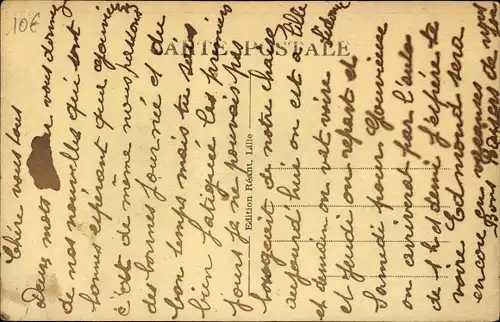 10€
CARTE POSTALE
Edition Réant, Lille
Chère vous tous
Deux mots vous donner
de nos nouvelles qui sont
bonnes espérant que
c'est de même nous passons
des bonnes journée et du
bon temps mais tu sais
bien fatiguée les premiers
jours je ne pouvais pas
de notre chaise
aujourd'hui on est a Lille
et demain on vet voir
et jeudi on repart et
Samedi pour
on arrivera par l'auto
de 1 h et demi j'espère te
voire Edmond sera
encore en vacances
Bons Baisers de nous